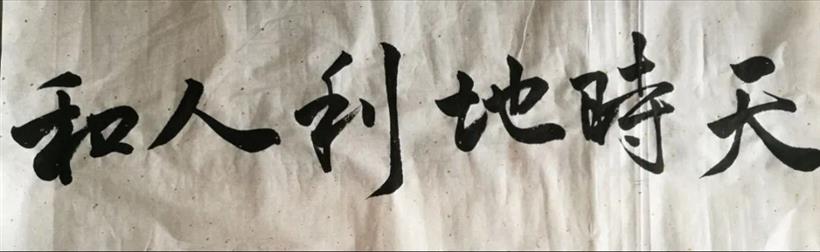 天時地利人和